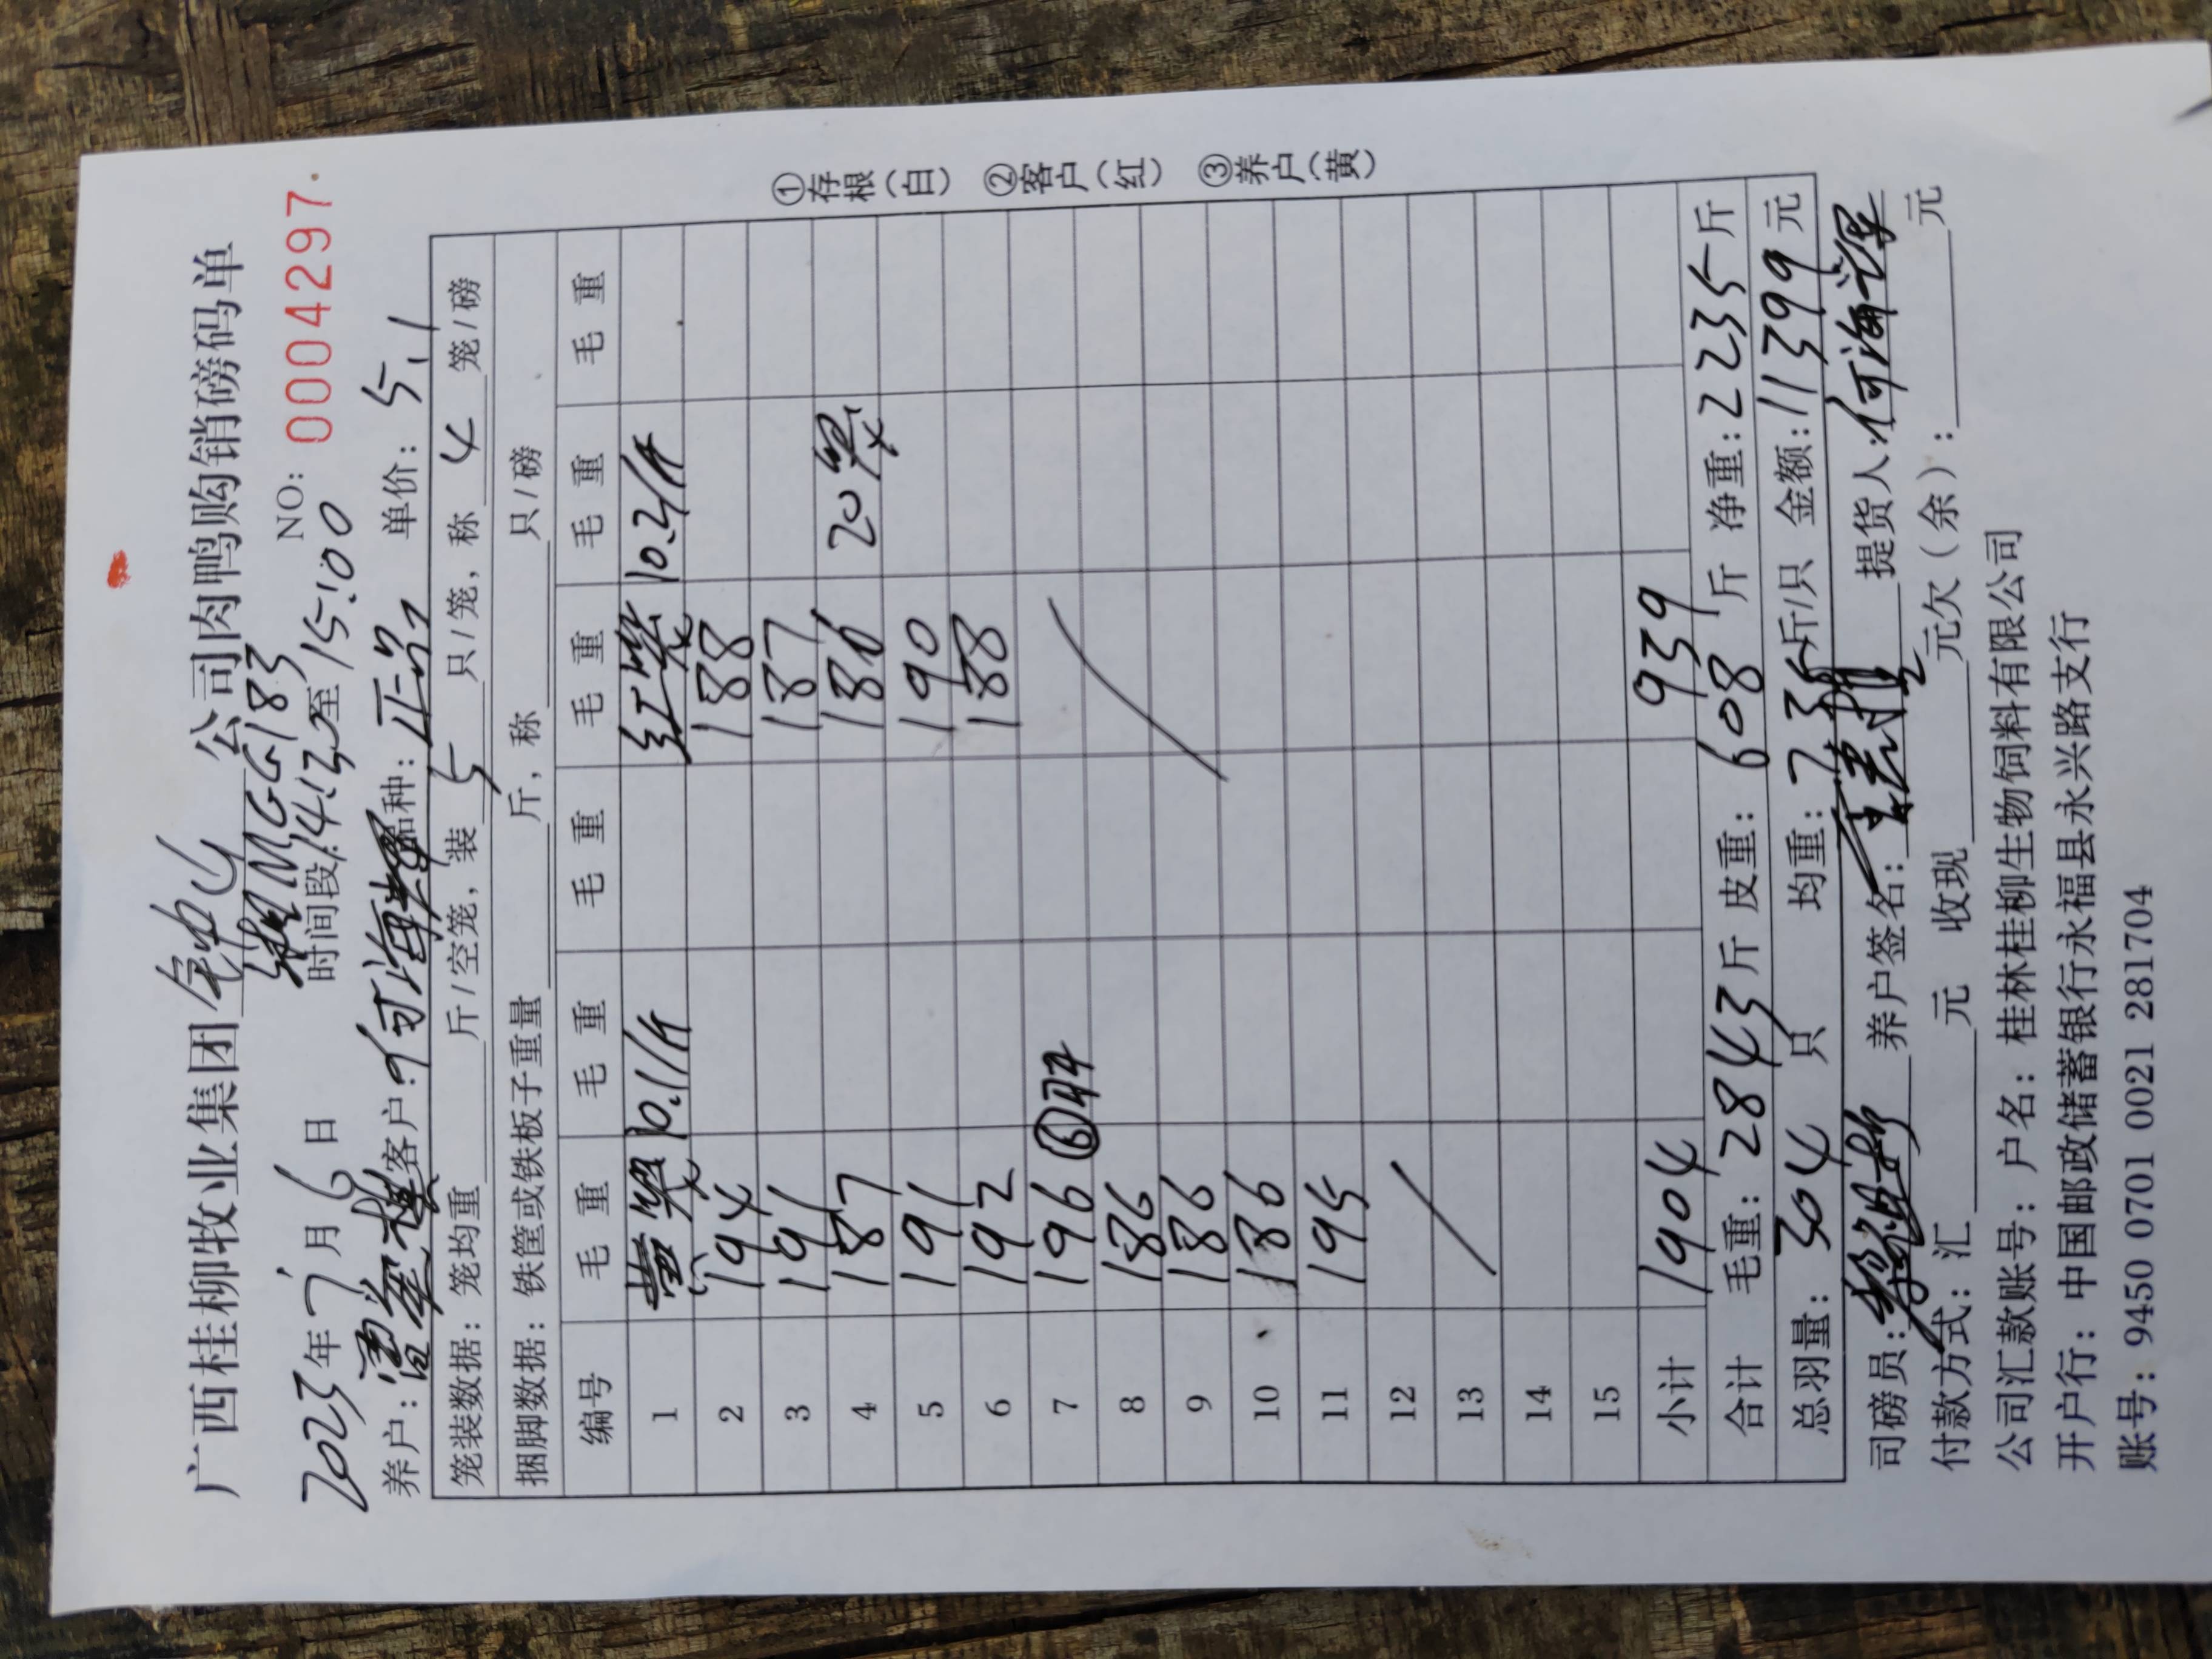 广西桂柳牧业集团 公司肉鸭购销磅码单
桂MGG183 NO: 0004297
2023年7月6日 时间段:14:30至15:00
养户: 客户:何海 品种:正 单价:5.1
笼装数据:笼均重 斤/空笼,装 5 只/笼,称 4 笼/磅
捆脚数据:铁筐或铁板子重量 斤,称 只/磅
编号 毛重 毛重 毛重 毛重 毛重 毛重
1 黄笼 10.1/斤 红笼 10.2/斤
2 194 188
3 191 187
4 187 186 20笼
5 191 190
6 192 188
7 196 ⑥
8 186
9 186
10 186
11 195
12
13
14
15
小计 1904 939
合计 毛重:2843斤 皮重:608斤 净重:2235斤
总羽量:304只 均重:7.35斤/只 金额:11399元
司磅员: 养户签名: 提货人:何海
付款方式:汇 元 收现 元欠(余): 元
公司汇款账号:户名:桂林桂柳生物饲料有限公司
开户行:中国邮政储蓄银行永福县永兴路支行
账号:9450 0701 0021 2817704
①存根(白) ②客户(红) ③养户(黄)